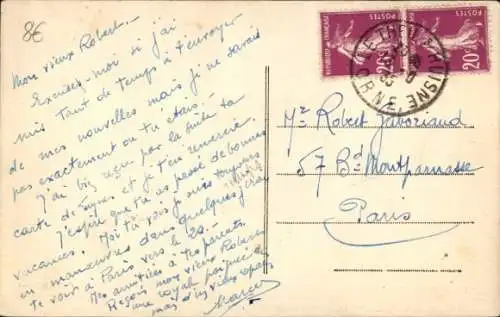 8€
Mon vieux Robert
Excuses-moi si j'ai
mis tant de temps à t'envoyer
de mes nouvelles mais je ne savais
pas exactement où tu étais.
J'ai bien reçu par la suite ta
carte de et je t'en remercie.
J'espère que tu as passé de bonnes
vacances. Moi tu vois je suis toujours
en manœuvres dans quelques jours
te voir à Paris vers le 20.
Mes amitiés à tes parents
Reçois mon vieux Robert
une loyale poignée de
main d'un vieux
Marcel
REPUBLIQUE FRANÇAISE
POSTES
20c
POSTES
20c
AISNE
Mr Robert Javoriaud
57 Bd Montparnasse
Paris